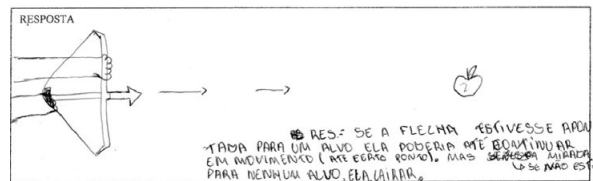 RESPOSTA
RES: SE A FLECHA ESTIVESSE APON
TADA PARA UM ALVO ELA PODERIA ATÉ CONTINUAR
EM MOVIMENTO (ATÉ CERTO PONTO). MAS MIRADA
SE NÃO EST
PARA NENHUM ALVO, ELA CAIRAR.